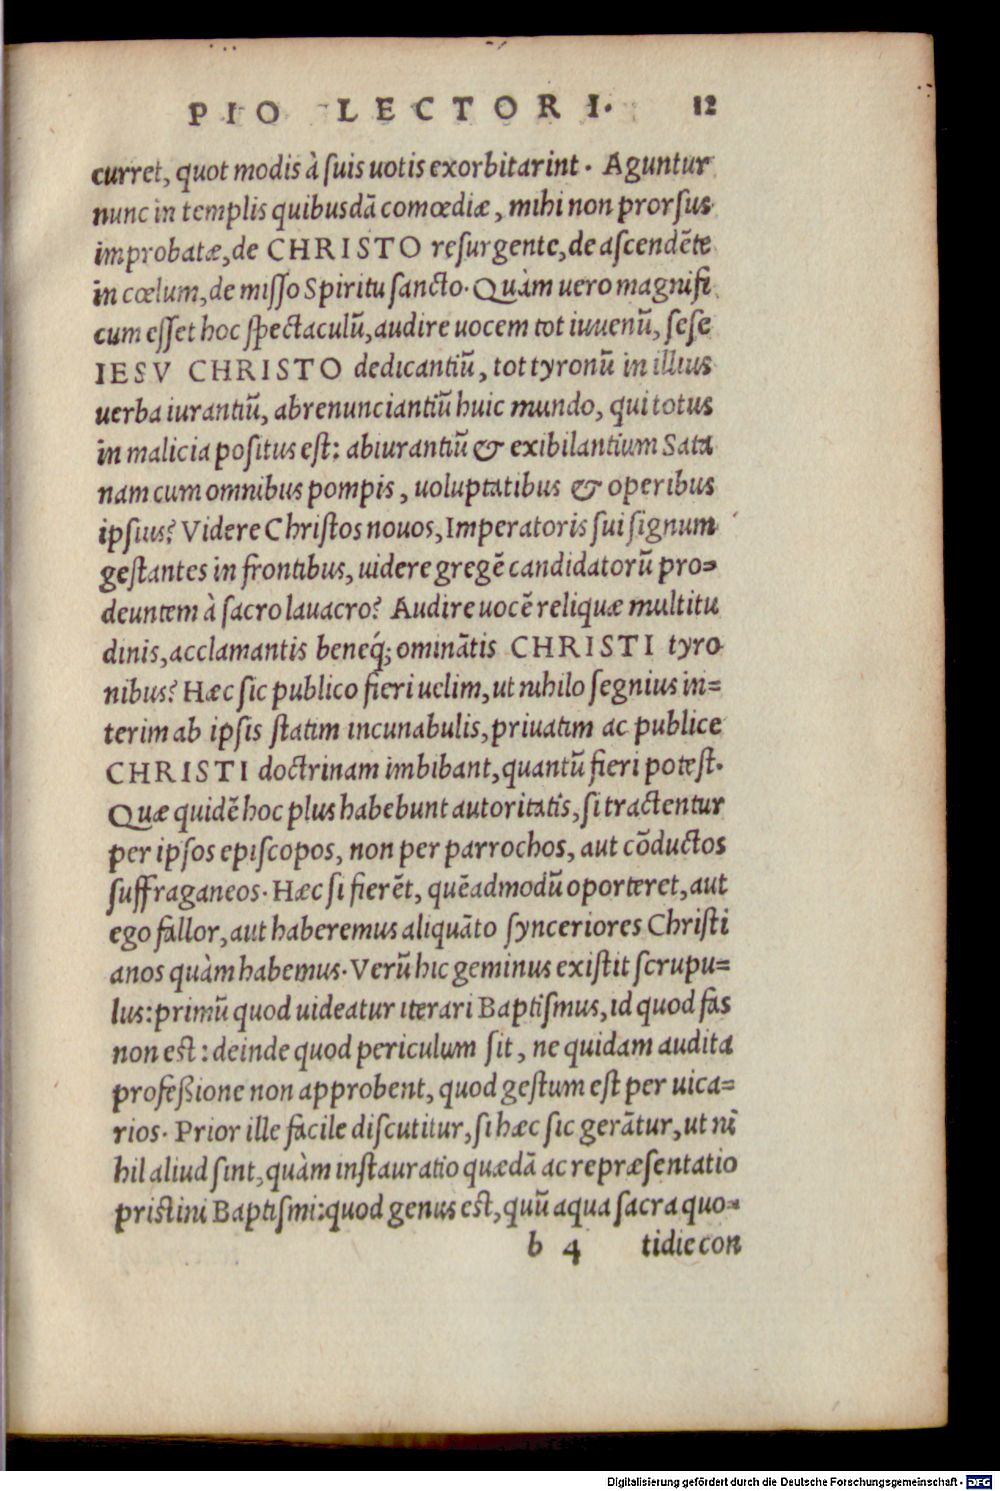 PIO LECTORI. 12
curret, quot modis à suis uotis exorbitarint. Aguntur
nunc in templis quibusdã comœdiæ, mihi non prorsus
improbatæ, de CHRISTO resurgente, de ascendẽte
in cœlum, de misso Spiritu sancto. Quàm uero magnifi
cum esset hoc spectaculũ, audire uocem tot iuuenũ, sese
IESV CHRISTO dedicantiũ, tot tyronũ in illius
uerba iurantiũ, abrenunciantiũ huic mundo, qui totus
in malicia positus est: abiurantiũ & exibilantium Sata
nam cum omnibus pompis, uoluptatibus & operibus
ipsius? Videre Christos nouos, Imperatoris sui signum
gestantes in frontibus, uidere gregẽ candidatorũ pro=
deuntem à sacro lauacro? Audire uocẽ reliquæ multitu
dinis, acclamantis beneq́; ominãtis CHRISTI tyro
nibus? Hæc sic publico fieri uelim, ut nihilo segnius in=
terim ab ipsis statim incunabulis, priuatim ac publice
CHRISTI doctrinam imbibant, quantũ fieri potest.
Quæ quidẽ hoc plus habebunt autoritatis, si tractentur
per ipsos episcopos, non per parrochos, aut cõductos
suffraganeos. Hæc si fierẽt, quẽadmodũ oporteret, aut
ego fallor, aut haberemus aliquãto synceriores Christi
anos quàm habemus. Verũ hic geminus existit scrupu=
lus: primũ quod uideatur iterari Baptismus, id quod fas
non est: deinde quod periculum sit, ne quidam audita
professione non approbent, quod gestum est per uica=
rios. Prior ille facile discutitur, si hæc sic gerãtur, ut ni
hil aliud sint, quàm instauratio quædã ac repræsentatio
pristini Baptismi: quod genus est, quũ aqua sacra quo=
b 4 tidie con
Digitalisierung gefördert durch die Deutsche Forschungsgemeinschaft - DFG